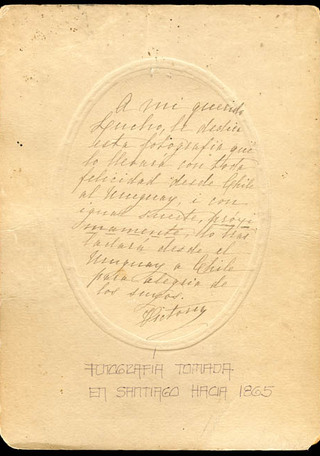 A mi querido
Lucho, le dedico
esta fotografia que
lo llevará con toda
felicidad desde Chile
al Uruguay, i con
igual suerte, proxi
mamente, lo tras
ladará desde el
Uruguay a Chile
para alegria de
los suyos.
FOTOGRAFIA TOMADA
EN SANTIAGO HACIA 1865